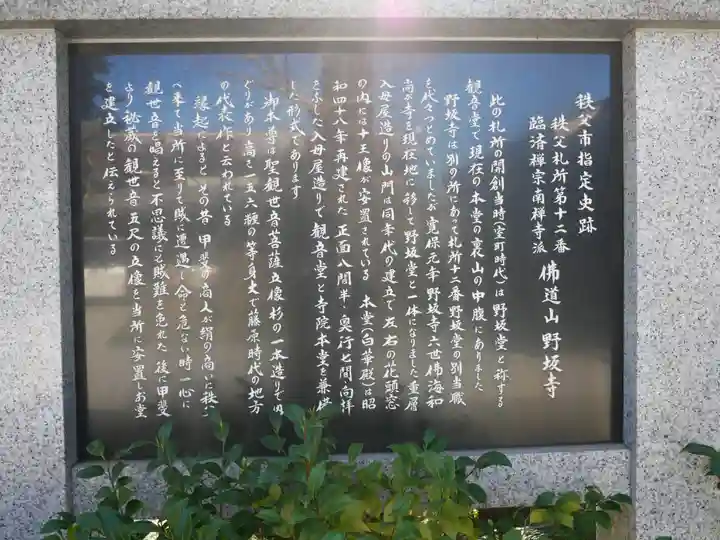 秩父市指定史跡
秩父札所第十二番
臨済禅宗南禅寺派
佛道山野坂寺
此の札所の開創当時(室町時代)は野坂堂と称する
観音堂で現在の本堂の裏山の中腹にありました
野坂寺は別の所にあって札所十二番野坂堂の別当職
を代々つとめていましたが寛保元年野坂寺六世佛海和
尚が寺を現在地に移して野坂堂と一体になりました重層
入母屋造りの山門は同年代の建立で左右の花頭窓
の内には十王像が安置されている 本堂(白華殿)は昭
和四十八年再建された正面八間半奥行七間向拝
を ふした入母屋造りで観音堂と寺院本堂を兼
した形式であります
御本尊は聖観世音菩薩立像杉の一本造りで内
ぐりがあり高さ一五六糎の等身大で藤原時代の地方
の代表作と云われている
縁起によるとその昔甲斐の商人が絹の商いに秩父
へ来て当所に至りて賊に遭遇し命も危ない時一心に
観世音を唱えると不思議にも賊難を免れた 後に甲斐
より秘蔵の観世音五尺の立像を当所に安置しお堂
を建立したと伝えられている